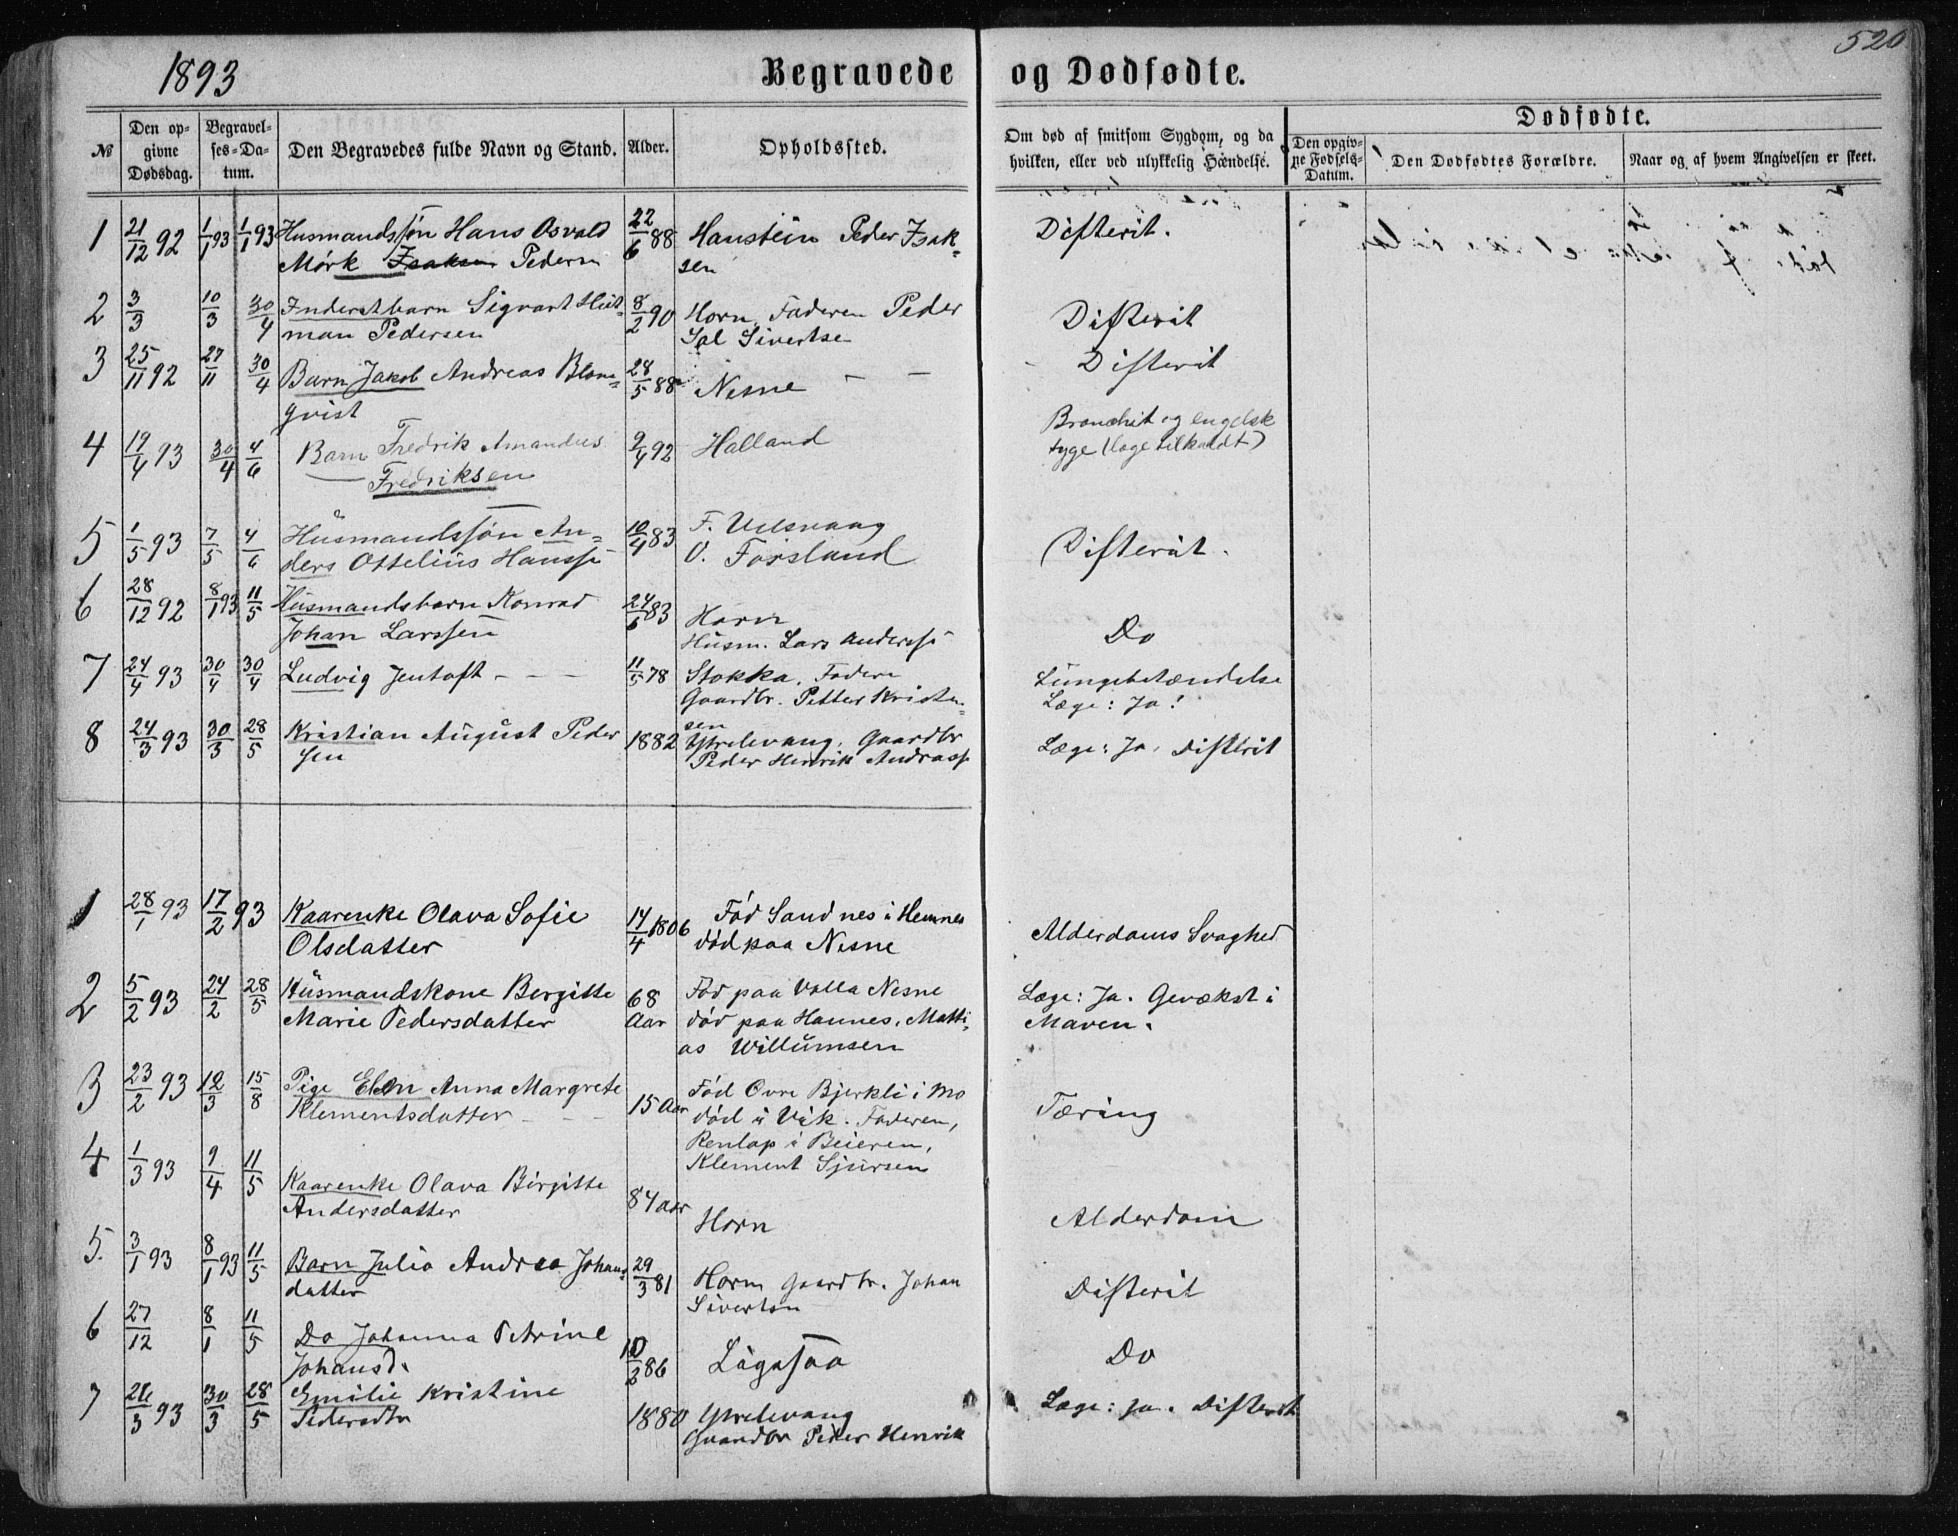 1893
Begravede og Dødfødte.
520
№
Den opgivne Dødsdag.
Begravelses-Datum.
Den Begravedes fulde Navn og Stand.
Alder.
Opholdssted.
Om død af smitsom Sygdom, og da hvilken, eller ved ulykkelig Hændelse.
Dødfødte.
Den opgivne Fødsels-Datum.
Den Dødfødtes Forældre.
Naar og af hvem Angivelsen er skeet.
1 21/12 92 1/1 93 1/1 93 Husmandssøn Hans Osvald 22/6 88 Hanstein Peder Isak- Difterit.
Mørk Isaksen Pedersn sen
2 3/3 10/3 30/4 Inderstbarn Sigvart Hilt- 8/2 90 Horn, Faderen Peder Difterit
man Pedersen Sal Sivertse
3 25/11 92 27/11 30/4 Barn Jakob Andreas Blom- 28/5 88 Nesne — — Difterit
qvist
4 19/4 93 30/4 4/6 Barn Fredrik Amandus 9/4 92 Halland Bronchit og engelsk
Fredriksen syge (læge tilkaldt)
5 1/5 93 7/5 4/6 Husmandssøn An- 10/4 83 F. Ulsvaag Difterit.
ders Ottelius Hanss. O. Forsland
6 28/12 92 8/1 93 11/5 Husmandsbarn Konrad 24/6 83 Horn Do
Johan Larssen Husm. Lars Anderss.
7 24/4 93 30/4 30/4 Ludvig Jentoft - - - 11/5 78 Stokka. Fader Lungebetændelse
Gaardbr. Petter Kristen- Læge: Ja!
sen
8 24/3 93 30/3 28/5 Kristian August Peder 1882 Ytrelevang. Gaardbr Læge: Ja. Difterit
sen Peder Henrik Andrass
1 28/1 93 17/2 93 Kaarenke Olava Sofie 14/4 1806 Fød Sandnes i Hemnes Alderdoms Svaghed
Olsdatter død paa Nesne
2 5/2 93 24/2 28/5 Husmandskone Bergitte 68 Fød paa Valla Nesne Læge: Ja. Gevækst i
Marie Pedersdatter Aar død paa Hannes. Matti- Maven.
as Willumsen
3 23/2 93 12/3 15/8 Pige Elen Anna Margrete 15 Aar Fød Øvre Bjerkli i Mo Tæring
Klementsdatter - - død i Vik. Faderen,
Renlap i Beieren,
Klement Sjursen
4 1/3 93 9/4 11/5 Kaarenke Olava Birgitte 84 aar Horn Alderdom
Andersdatter
5. 3/1 93 8/1 93 11/5 Barn Julia Andrea Johans- 29/3 81 Horn Gaardbr. Johan Difterit
datter Sivertsn
6 27/12 8/1 11/5 Do Johanna Petrine 10/2 86 Lagasaa Do
Johansd.
7 26/3 93 30/3 28/5 Emilie Kristine 1880 Ytrelevang Læge: ja. Difterit
Pedersdtr Gaardbr Peder Henrik